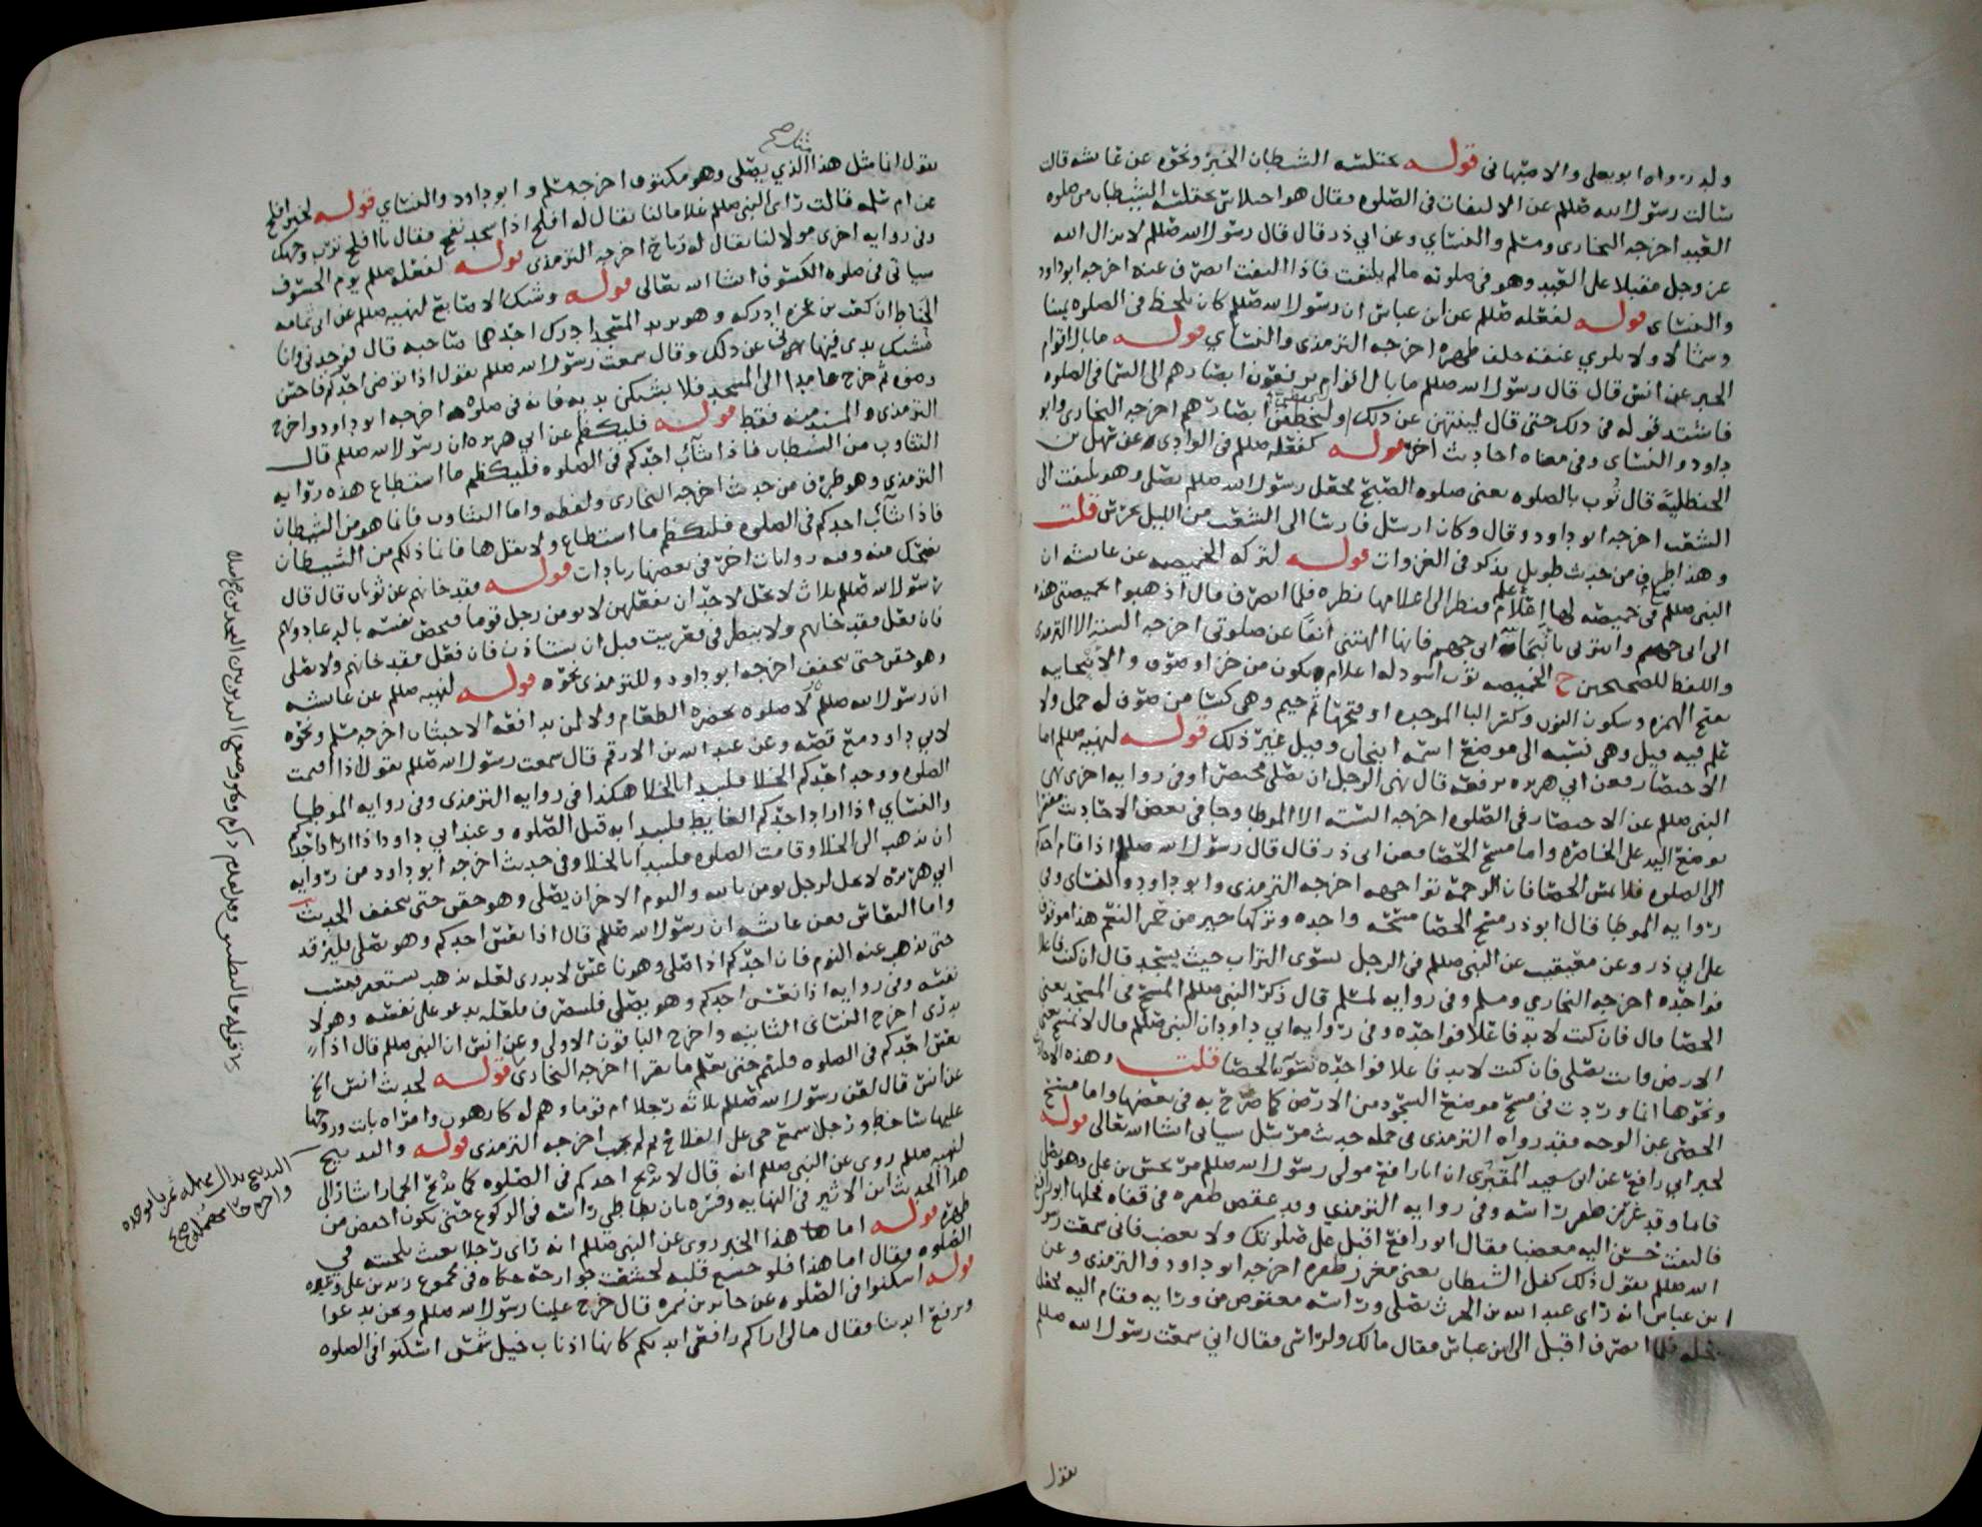 ولد رواه ابو يعلى والاصبهاني قوله يختلسه الشيطان الخبر ونحوه عن عائشه قالت
سالت رسول الله صللم عن الالتفات في الصلوه فقال هو اختلاس يختلسه الشيطان من صلوه
العبد اخرجه البخاري ومسلم والنسائي وعن ابي ذر قال قال رسول الله صللم لا يزال الله
عز وجل مقبلا على العبد وهو في صلوته مالم يلتفت فاذا التفت انصرف عنه اخرجه ابو داود
والنسائي قوله لفعله صللم عن ابن عباس ان رسول الله صللم كان يلحظ في الصلوه يمينا
وشمالا ولا يلوي عنقه خلف ظهره اخرجه الترمذي والنسائي قوله ما بال اقوام
الخبر عن انس قال قال رسول الله صللم ما بال اقوام يرفعون ابصارهم الى السما في الصلوه
فاشتد قوله في ذلك حتى قال لينتهن عن ذلك او لتخطفن ابصارهم اخرجه البخاري وابو
داود والنسائي وفي معناه احاديث اخر قوله كفعله صللم في الوادي عن سهل بن
الحنظلية قال ثوب بالصلوه يعنى صلوه الصبح فجعل رسول الله صللم يصلي وهو يلتفت الى
الشعب اخرجه ابو داود وقال وكان ارسل فارسا الى الشعب من الليل يحرس قلت
وهذا طرف من حديث طويل يذكر في الغزوات قوله لتركه الخميصه عن عائشه ان
النبي صللم صلى في خميصه لها اعلام فنظر الى اعلامها نظره فلما انصرف قال اذهبوا بخميصتي هذه
الى ابي جهم واتوني بانبجانية ابي جهم فانها الهتني آنفا عن صلوتي اخرجه الستة الا الترمذي
واللفظ للصحيحين ح الخميصه ثوب اسود له اعلام يكون من خز او صوف والانبجانيه
بفتح الهمزه وسكون النون وكسر البا الموحده او فتحها ثم جيم وهي كسا من صوف له خمل ولا
علم فيه قيل وهي نسبه الى موضع اسمه انبجان وقيل غير ذلك قوله لنهيه صللم اما
الاختصار فعن ابي هريره يرفعه قال نهى الرجل ان يصلي مختصرا وفي روايه اخرى نهى
النبي صللم عن الاختصار في الصلوه اخرجه الستة الا الموطا وجا في بعض الاحاديث مفسرا
بوضع اليد على الخاصره واما مسح الحصا فعن ابي ذر قال قال رسول الله صللم اذا قام احدكم
الى الصلوه فلا يمس الحصا فان الرحمة تواجهه اخرجه الترمذي وابو داود والنسائي وفي
روايه الموطا قال ابو ذر مسح الحصا مسحه واحده وتركها خير من حمر النعم هذا موقوف
على ابي ذر وعن معيقيب عن النبي صللم في الرجل يسوي التراب حيث يسجد قال ان كنت فاعلا
فواحده اخرجه البخاري ومسلم وفي روايه لمسلم قال ذكر النبي صللم المسح في المسجد يعني
الحصا قال فان كنت لابد فاعلا فواحده وفي روايه ابي داود ان النبي صللم قال لا تمسح يعني
الارض وانت تصلي فان كنت لابد فاعلا فواحده تسوية الحصا قلت وهذه الاحاديث
ونحوها انما وردت في مسح موضع السجود من الارض كما صرح به في بعضها واما مسح
الحصى عن الوجه فقد رواه الترمذي في جمله حديث مرسل سياتي انشا الله تعالى قوله
لخبر ابي رافع عن ابي سعيد المقبري ان ابا رافع مولى رسول الله صللم مر بحسن بن علي وهو يصلي
قائما وقد غرز ظفر راسه وفي روايه الترمذي وقد عقص ظفره في قفاه فحلها ابو رافع
فالتفت حسن اليه مغضبا فقال ابو رافع اقبل على صلوتك ولا تغضب فاني سمعت رسول
الله صللم يقول ذلك كفل الشيطان يعنى مغرز ظفره اخرجه ابو داود والترمذي وعن
ابن عباس انه راى عبد الله بن الحرث يصلي وراسه معقوص من ورايه فقام اليه فجعل
يحله فلما انصرف اقبل الى ابن عباس فقال مالك ولراسي فقال اني سمعت رسول الله صللم
يقول
يقول انما مثل هذا الذي يصلي وهو مكتوف اخرجه مسلم وابو داود والنسائي قوله لخبر افلح
عن ام سلمه قالت راى النبي صللم غلاما لنا يقال له افلح اذا سجد نفخ فقال يا افلح ترب وجهك
وفي روايه اخرى مولا لنا يقال له رباح اخرجه الترمذي قوله لفعله صللم يوم الخسوف
سياتي في صلوه الكسوف انشا الله تعالى قوله وشبك الاصابع لنهيه صللم عن ابي ثمامه
الحناط ان كعب بن عجره ادركه وهو يريد المسجد ادرك احدهما صاحبه قال فوجدني وانا
مشبك يدي فنهاني عن ذلك وقال سمعت رسول الله صللم يقول اذا توضى احدكم فاحسن
وضوه ثم خرج عامدا الى المسجد فلا يشبكن يديه فانه في صلوه اخرجه ابو داود واخرج
الترمذي والمسند منه فقط قوله فليكظم عن ابي هريره ان رسول الله صللم قال
التثاوب من الشيطان فاذا تثآب احدكم في الصلوه فليكظم ما استطاع هذه روايه
الترمذي وهو طرف من حديث اخرجه البخاري ولفظه واما التثاوب فانما هو من الشيطان
فاذا تثآب احدكم في الصلوه فليكظم ما استطاع ولا يقل ها فانما ذلكم من الشيطان
يضحك منه وفيه روايات اخر في بعضها زيادات قوله فقد خانهم عن ثوبان قال قال
رسول الله صللم ثلاث لا يحل لاحد ان يفعلهن لا يومن رجل قوما فيخص نفسه بالدعا دونهم
فان فعل فقد خانهم ولا ينظر في قعر بيت قبل ان يستاذن فان فعل فقد خانهم ولا يصلي
وهو حقن حتى يتخفف اخرجه ابو داود وللترمذي نحوه قوله لنهيه صللم عن عائشه
ان رسول الله صللم قال لا صلوه بحضره الطعام ولا لمن يدافعه الاخبثان اخرجه مسلم ونحوه
لابي داود مع قصه وعن عبد الله بن الارقم قال سمعت رسول الله صللم يقول اذا اقيمت
الصلوه ووجد احدكم الخلا فليبدا بالخلا هكذا في روايه الترمذي وفي روايه الموطا
والنسائي اذا اراد احدكم الغايط فليبدا به قبل الصلوه وعند ابي داود اذا اراد احدكم
ان يذهب الى الخلا وقامت الصلوه فليبدا بالخلا وفي حديث اخرجه ابو داود من روايه
ابي هريره لا يحل لرجل يومن بالله واليوم الاخر ان يصلي وهو حقن حتى يتخفف الحديث
واما النعاس فعن عائشه ان رسول الله صللم قال اذا نعس احدكم وهو يصلي فليرقد
حتى يذهب عنه النوم فان احدكم اذا صلى وهو ناعس لا يدري لعله يذهب يستغفر فيسب
نفسه وفي روايه اذا نعس احدكم وهو يصلي فلينصرف فلعله يدعو على نفسه وهو لا
يدري اخرج النسائي الثانيه واخرج الباقون الاولى وعن انس ان النبي صللم قال اذا
نعس احدكم في الصلوه فلينم حتى يعلم ما يقرا اخرجه البخاري قوله لحديث انس الخ
عن انس قال لعن رسول الله صللم ثلاثه رجلا ام قوما وهم له كارهون وامراه باتت وزوجها
عليها ساخط ورجل سمع حي على الفلاح ثم لم يجب اخرجه الترمذي قوله والتدبيح
لنهيه صللم روي عن النبي صللم انه قال لا يدبح احدكم في الصلوه كما يدبح الحمار اشار الى
هذا الحديث ابن الاثير في النهايه وفسره بان يطاطي راسه في الركوع حتى يكون اخفض من
ظهره قوله اما هذا الخبر روي عن النبي صللم انه راى رجلا يعبث بلحيته في
الصلوه فقال اما هذا فلو خشع قلبه لخشعت جوارحه حكاه في مجموع زيد بن علي وغيره
قوله اسكنوا في الصلوه عن جابر بن سمره قال خرج علينا رسول الله صللم ونحن ندعوا
ونرفع ايدينا فقال مالي اراكم رافعي ايديكم كانها اذناب خيل شمس اسكنوا في الصلوه
التدبيح بدال مهمله ثم با موحده
واخره حا مهمله